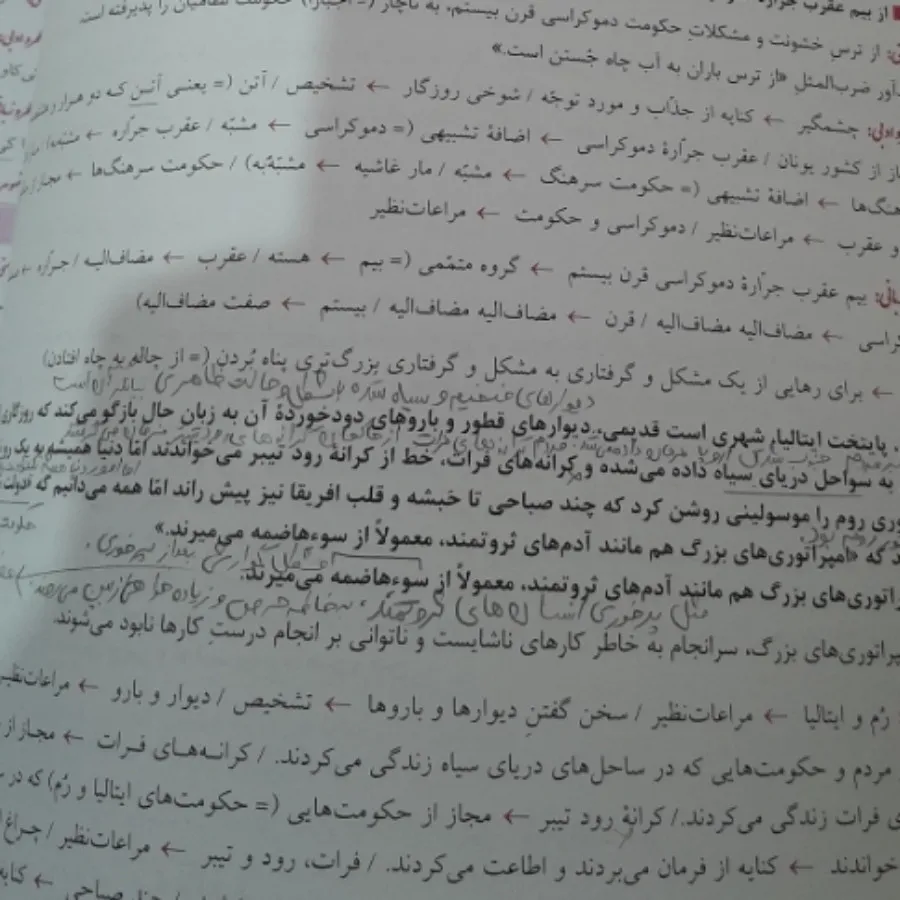 از بیم عقرب جراره
از ترس خشونت و مشکلاتِ حکومت دموکراسی قرن بیستم، به ناچار (= اجبار) حکومت نظامیان را پذیرفته است
آور ضرب‌المثلِ «از ترس باران به آب چاه جُستن است.»
چشمگیر ← کنایه از جذّاب و مورد توجّه / شوخی روزگار ← تشخیص / آتن (= یعنی آتن که دو هزار
از کشور یونان / عقرب جرّارهٔ دموکراسی ← اضافهٔ تشبیهی (= دموکراسی ← مشبّه / عقرب جرّاره ← مشبّه‌به / مار
هنگ‌ها ← اضافهٔ تشبیهی (= حکومت سرهنگ ← مشبّه / مار غاشیه ← مشبّه‌به) / حکومت سرهنگ‌ها ← مجاز از
و عقرب ← مراعات‌نظیر / دموکراسی و حکومت ← مراعات‌نظیر
بیم عقرب جرّارهٔ دموکراسی قرن بیستم ← گروه متمّمی (= بیم ← هسته / عقرب ← مضاف‌الیه / جرّاره ←
کراسی ← مضاف‌الیه مضاف‌الیه / قرن ← مضاف‌الیه مضاف‌الیه / بیستم ← صفت مضاف‌الیه)
← برای رهایی از یک مشکل و گرفتاری به مشکل و گرفتاری بزرگ‌تری پناه بُردن (= از چاله به چاه افتادن)
دیوارهای ضخیم و سیاه شده
پایتخت ایتالیا، شهری است قدیمی، دیوارهای قطور و باروهای دودخوردهٔ آن به زبان حال بازگو می‌کند که روزگاری
به سواحل دریای سیاه داده می‌شده و کرانه‌های فرات، خط از کرانهٔ رود تیبر می‌خواندند امّا دنیا همیشه به یک رو
وری روم را موسولینی روشن کرد که چند صباحی تا حبشه و قلب افریقا نیز پیش راند امّا همه می‌دانیم که
د که «امپراتوری‌های بزرگ هم مانند آدم‌های ثروتمند، معمولاً از سوءهاضمه می‌میرند.»
راتوری‌های بزرگ هم مانند آدم‌های ثروتمند، معمولاً از سوءهاضمه می‌میرند.
مثل پرخوری انسان‌های ثروتمند،
پراتوری‌های بزرگ، سرانجام به خاطر کارهای ناشایست و ناتوانی بر انجام درستِ کارها نابود می‌شوند.
رُم و ایتالیا ← مراعات‌نظیر / سخن گفتنِ دیوارها و باروها ← تشخیص / دیوار و بارو ← مراعات‌نظیر
مردم و حکومت‌هایی که در ساحل‌های دریای سیاه زندگی می‌کردند. / کرانه‌های فرات ← مجاز از
ی فرات زندگی می‌کردند. / کرانهٔ رود تیبر ← مجاز از حکومت‌هایی (= حکومت‌های ایتالیا و رُم) که در
خواندند ← کنایه از فرمان می‌بردند و اطاعت می‌کردند. / فرات، رود و تیبر ← مراعات‌نظیر / چراغ
صباحی ← کنایه